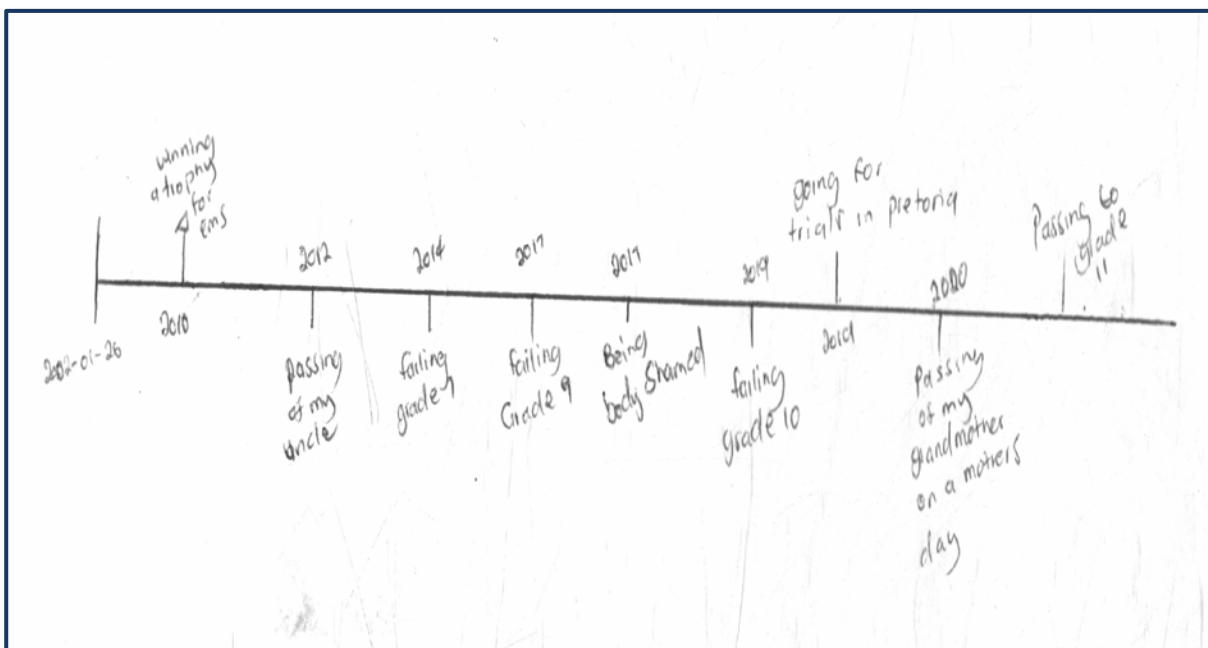 winning
a trophy
for
ems
2010
2002-01-26
2012
passing
of my
uncle
2014
failing
grade 7
2017
failing
Grade 9
2017
Being
body Shamed
2019
failing
grade 10
going for
trials in pretoria
2019
2020
Passing
of my
grandmother
on a mothers
day
Passing to
grade
11